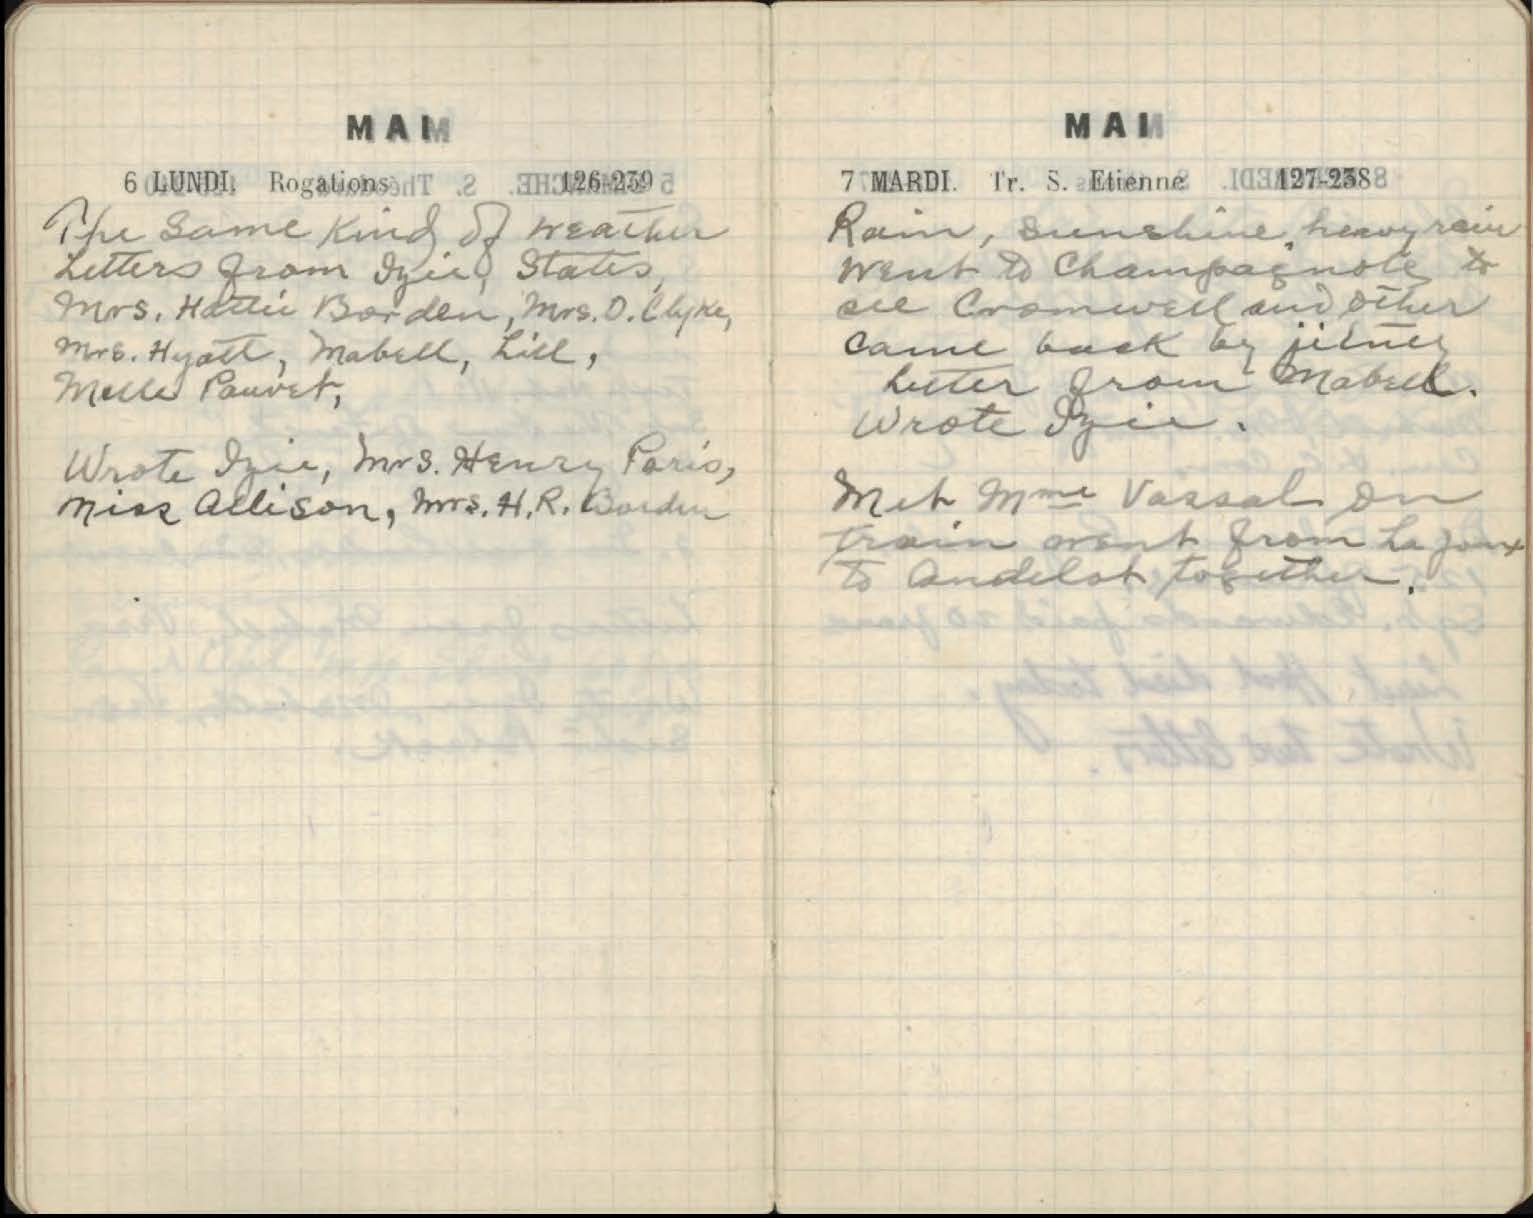 MAI
6 LUNDI. Rogations 126-239
The Same Kind of weather
Letters from Izie, States,
Mrs. Hattie Borden, Mrs. O. Clyke,
Mrs. Hyatt, Mabell, Lill,
Melle Pauvet,
Wrote Izie, Mrs. Henry Paris,
Miss Allison, Mrs. H.R. Borden
MAI
7 MARDI. Tr. S. Etienne 127-238
Rain, sunshine, heavy rain
went to Champagnole to
see Cromwell and other
came back by jitney
Letter from Mabell.
Wrote Izie.
Met Mme Vassal on
train went from La Joux
to Andelot together.